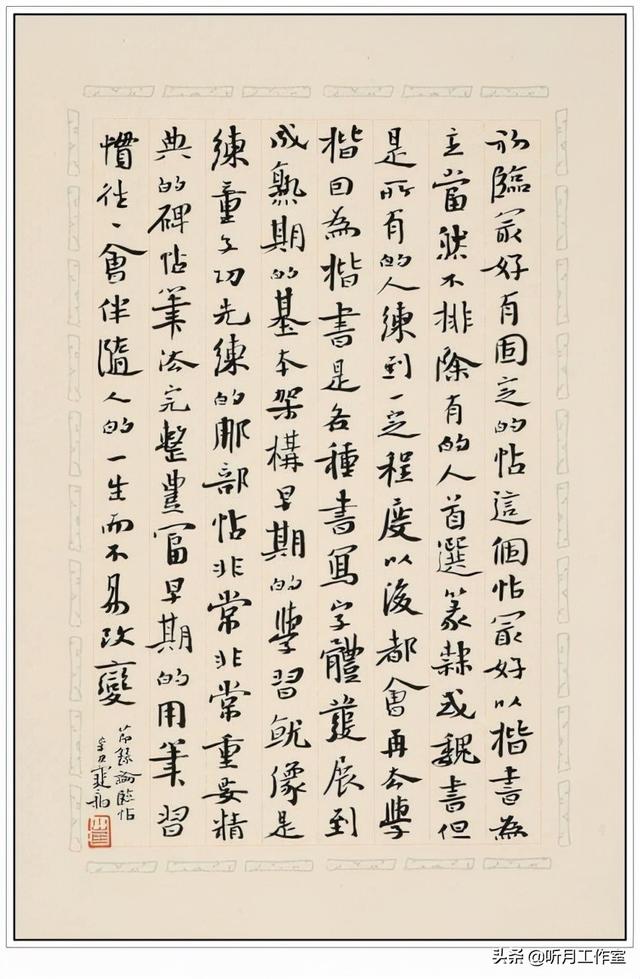 初臨冣好有固定的帖這個帖冣好以楷書為
主當然不排除有的人首選篆隸或魏書但
是所有的人練到一定程度以後都會再去學
楷因為楷書是各種書寫字體發展到
成熟期的基本架構早期的學習就像是
練童子功先練的那部帖非常非常重要精
典的碑帖筆法完整豊富早期的用筆習
慣往〻會伴隨人的一生而不易改變
節錄論臨帖
辛丑
头条 @听月工作室